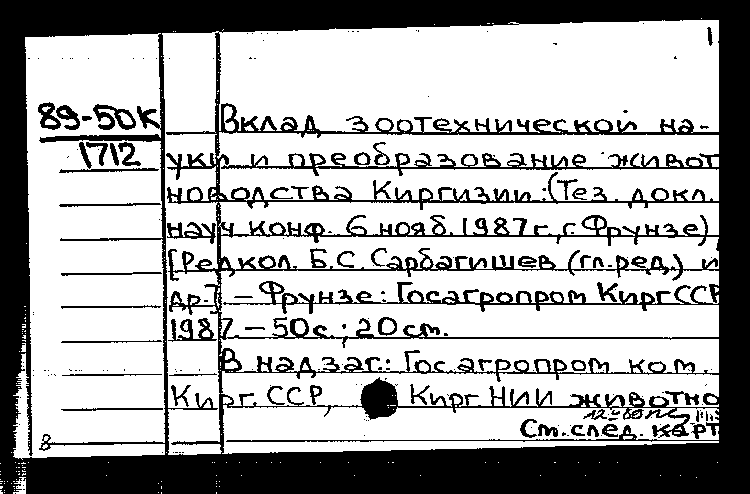 1
89-50К Вклад зоотехнической на-
1712 уки и преобразование живот
новодства Киргизии:(Тез. докл.
науч конф. 6 нояб. 1987 г., г. Фрунзе)
[Редкол. Б.С. Сарбагишев (гл. ред.) и
др.] – Фрунзе: Госагропром Кирг ССР
1987. – 50 с.; 20 см.
В надзаг.: Гос. агропром ком.
Кирг. ССР, Кирг. НИИ животно
См. след. карт
8